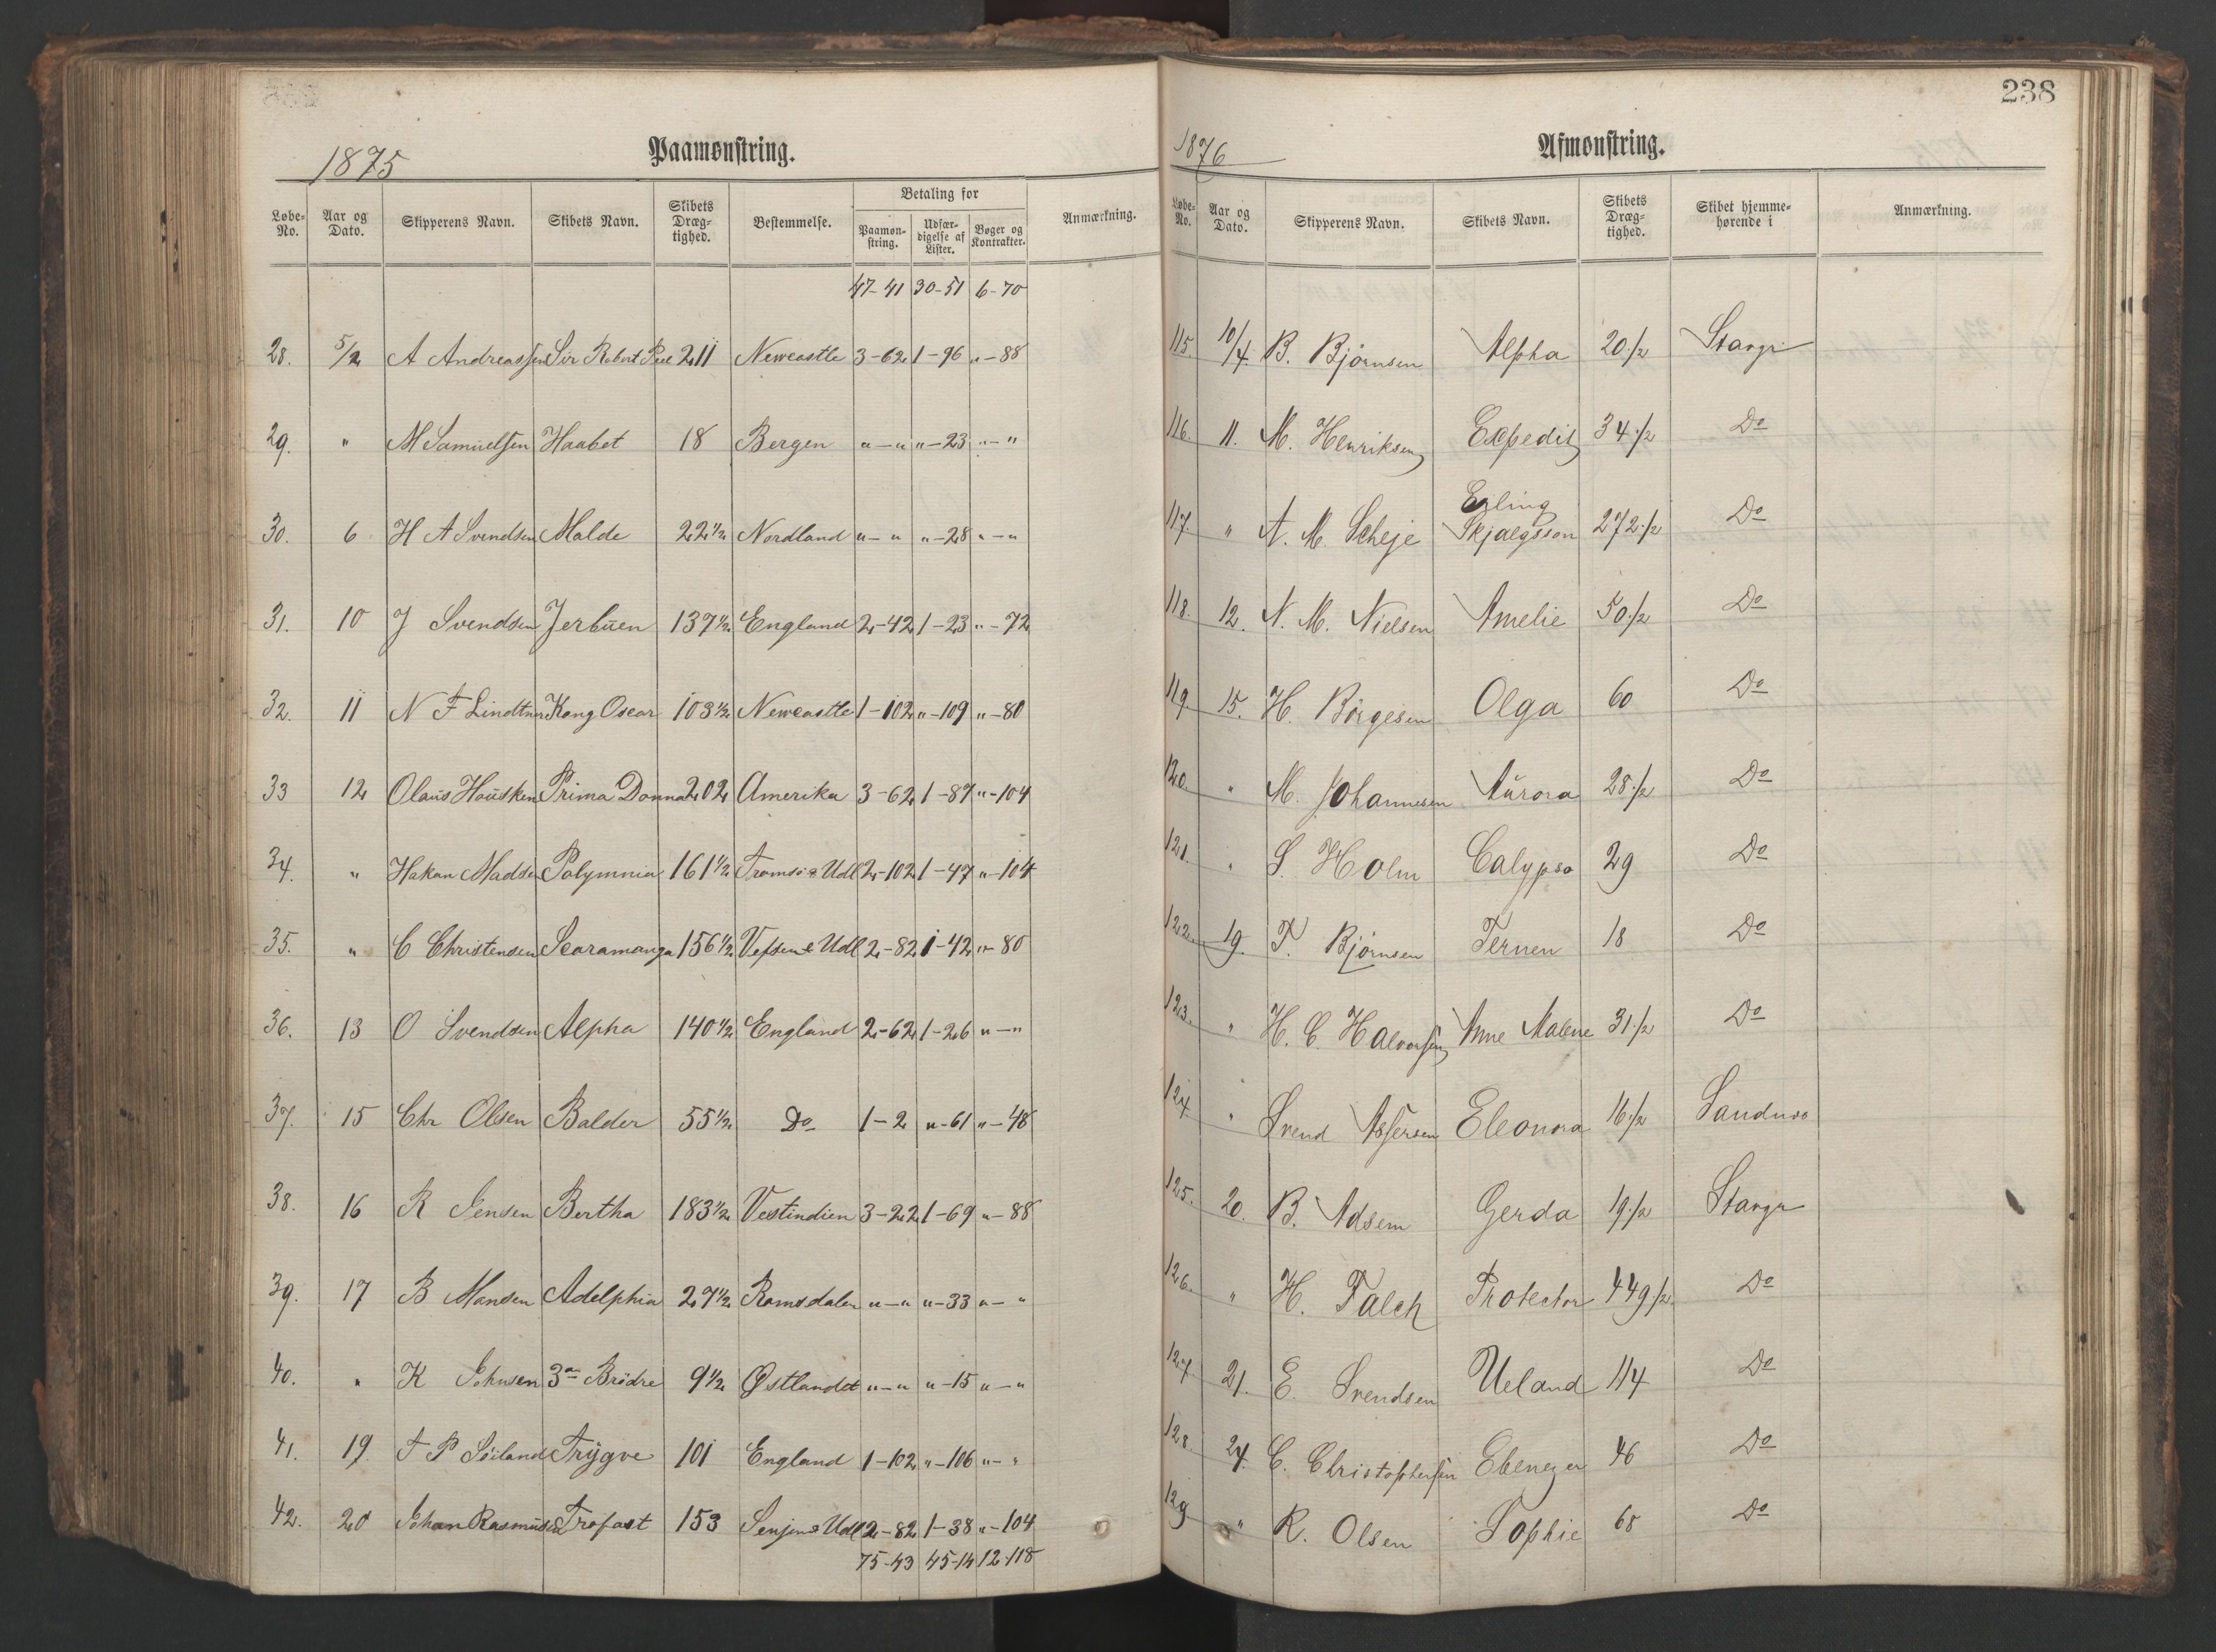 1875 Paamønstring.
Løbe-No. Aar og Dato. Skipperens Navn. Skibets Navn. Skibets Dræg-tighed. Bestemmelse. Betaling for Paamøn-string. Udfær-digelse af Lister. Bøger og Kontrakter. Anmærkning.
47-41 30-51 6-70
28. 5/2 A Andreassen Sir Robert Peel 211 Newcastle 3-62 1-96 "-88
29. " M Samuelsen Haabet 18 Bergen "-" "-23 "-"
30. 6 H A Svendsen Malde 22 1/2 Nordland "-" "-28 "-"
31. 10 J Svendsen Jerbuen 137 1/2 England 2-42 1-23 "-72
32. 11 N F Lindtner Kong Oscar 103 1/2 Newcastle 1-102 "-109 "-80
33 12 Olaus Housken Prima Donna 202 Amerika 3-62 1-87 "-104
34. " Hakon Madsen Polymnia 161 1/2 Tromsø & Udl 2-102 1-47 "-104
35. " C Christensen Scaramanga 156 1/2 Vefsen & Udl 2-82 1-42 "-80
36. 13 O Svendsen Alpha 140 1/2 England 2-62 1-26 "-"
37. 15 Chr Olsen Balder 55 1/2 Do 1-2 "-61 "-48
38. 16 R Jensen Bertha 183 1/2 Vestindien 3-22 1-69 "-88
39. 17 B Monsen Adelphia 27 1/2 Romsdalen "-" "-33 "-"
40. " K Johnsen 3de Brødre 9 1/2 Østlandet "-" "-15 "-"
41. 19 T P Søiland Trygve 101 England 1-102 "-106 "-"
42. 20 Johan Rasmussen Trofast 153 Senjen & Udl 2-82 1-38 "-104
75-43 45-14 12-118
238
1876 Afmønstring.
Løbe-No. Aar og Dato. Skipperens Navn. Skibets Navn. Skibets Dræg-tighed. Skibet hjemme-hørende i Anmærkning.
115. 10/4. B. Bjørnsen Alpha 20 1/2 Stavgr
116. 11. M. Henriksen Expedit 34 1/2 Do
117. " A. M. Scheje Erling Skjalgsson 272 1/2 Do
118. 12. N. M. Nielsen Amelie 50 1/2 Do
119 15. H. Börgesen Olga 60 Do
120. " M. Johannesen Aurora 28 1/2 Do
121. " S. Holm Calypso 29 Do
122. 19. T. Bjørnsen Ternen 18 Do
123. " H. C. Halvorsen Anne Malene 31 1/2 Do
124. " Svend Assersen Eleonora 16 1/2 Sandnes
125. 20. B. Adsem Gerda 19 1/2 Stavgr
126. " H. Falch Protector 449 1/2 Do
127. 21. E. Svendsen Ueland 114 Do
128. 24. C. Christophersen Ebenezer 46 Do
129 " R. Olsen Sophie 68 Do